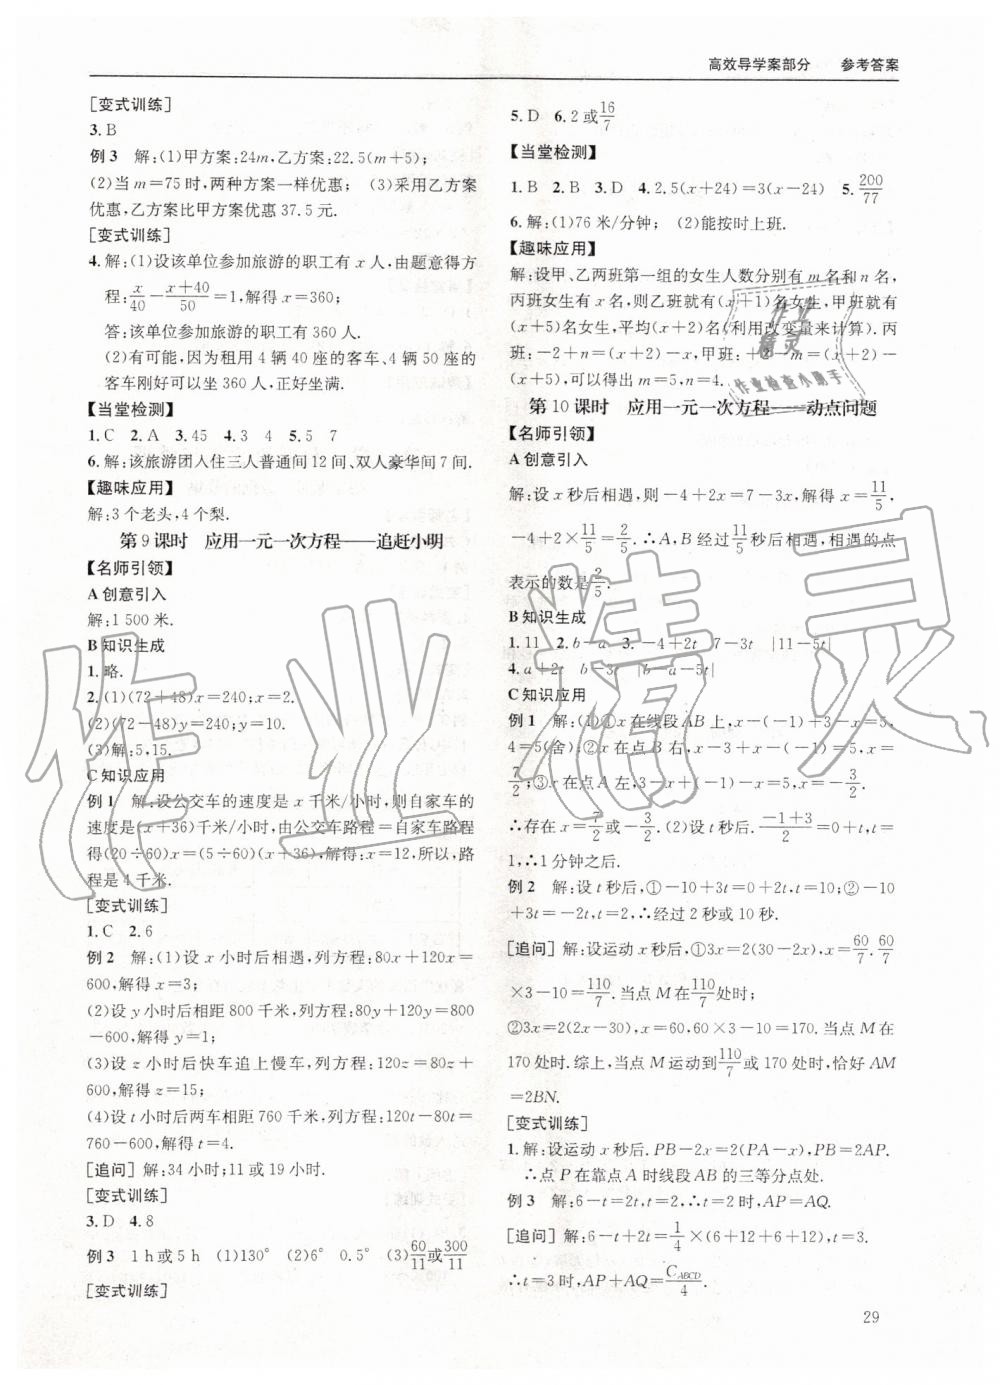 高效导学案部分 参考答案
[变式训练]
3.B
例3 解:(1)甲方案:24m,乙方案:22.5(m+5);
(2)当m=75时,两种方案一样优惠; (3)采用乙方案
优惠,乙方案比甲方案优惠37.5元.
[变式训练]
4.解:(1)设该单位参加旅游的职工有x人,由题意得方
程:x/40-(x+40)/50=1,解得x=360;
答:该单位参加旅游的职工有360人.
(2)有可能,因为租用4辆40座的客车、4辆50座的
客车刚好可以坐360人,正好坐满.
【当堂检测】
1.C 2.A 3.45 4.3 4 5.5 7
6.解:该旅游团人住三人普通间12间、双人豪华间7间.
【趣味应用】
解:3个老头,4个梨.
第9课时 应用一元一次方程——追赶小明
【名师引领】
A创意引入
解:1 500米.
B知识生成
1.略.
2.(1)(72+48)x=240;x=2.
(2)(72-48)y=240;y=10.
(3)解:5,15.
C知识应用
例1 解:设公交车的速度是x千米/小时,则自家车的
速度是(x+36)千米/小时,由公交车路程=自家车路程
得(20÷60)x=(5÷60)(x+36),解得:x=12,所以,路
程是4千米.
[变式训练]
1.C 2.6
例2 解:(1)设x小时后相遇,列方程:80x+120x=
600,解得x=3;
(2)设y小时后相距800千米,列方程:80y+120y=800
-600,解得y=1;
(3)设z小时后快车追上慢车,列方程:120z=80z+
600,解得z=15;
(4)设t小时后两车相距760千米,列方程:120t-80t=
760-600,解得t=4.
[追问]解:34小时;11或19小时.
[变式训练]
3.D 4.8
例3 1 h或5 h (1)130° (2)6° 0.5° (3)60/11或300/11
[变式训练]
5.D 6.2或16/7
【当堂检测】
1.B 2.B 3.D 4.2.5(x+24)=3(x-24) 5.200/77
6.解:(1)76米/分钟; (2)能按时上班.
【趣味应用】
解:设甲、乙两班第一组的女生人数分别有m名和n名,
丙班女生有x名,则乙班就有(x+1)名女生,甲班就有
(x+5)名女生,平均(x+2)名(利用改变量来计算).丙
班:-2+n=(x+2)-x,甲班:+2-m=(x+2)-
(x+5),可以得出m=5,n=4.
第10课时 应用一元一次方程——动点问题
【名师引领】
A创意引入
解:设x秒后相遇,则-4+2x=7-3x,解得x=11/5.
-4+2×11/5=2/5.∴A,B经过11/5秒后相遇,相遇的点
表示的数是2/5.
B知识生成
1.11 2.b-a 3.-4+2t 7-3t |11-5t|
4.a+2t b-3t |b-a-5t|
C知识应用
例1 解:(1)①x在线段AB上,x-(-1)+3-x=5,
4=5(舍);②x在点B右,x-3+x-(-1)=5,x=
7/2;③x在点A左,3-x+(-1)-x=5,x=-3/2.
∴存在x=7/2或-3/2.(2)设t秒后.(-1+3)/2=0+t,t=
1,∴1分钟之后.
例2 解:设t秒后,①-10+3t=0,t=10;②-10
+3t=-2t,t=2,∴经过2秒或10秒.
[追问]解:设运动x秒后,①3x=2(30-2x),x=60/7.60/7
×3-10=110/7.当点M在110/7处时;
②3x=2(2x-30),x=60,60×3-10=170.当点M在
170处时.综上,当点M运动到110/7或170处时,恰好AM
=2BN.
[变式训练]
1.解:设运动x秒后,PB-2x=2(PA-x),PB=2AP.
∴点P在靠点A时线段AB的三等分点处.
例3 解:6-t=2t,t=2,∴t=2时,AP=AQ.
[追问]解:6-t+2t=1/4×(6+12+6+12),t=3.
∴t=3时,AP+AQ=C_ABCD/4.
29
作业精灵
作业精灵
作业检查小助手